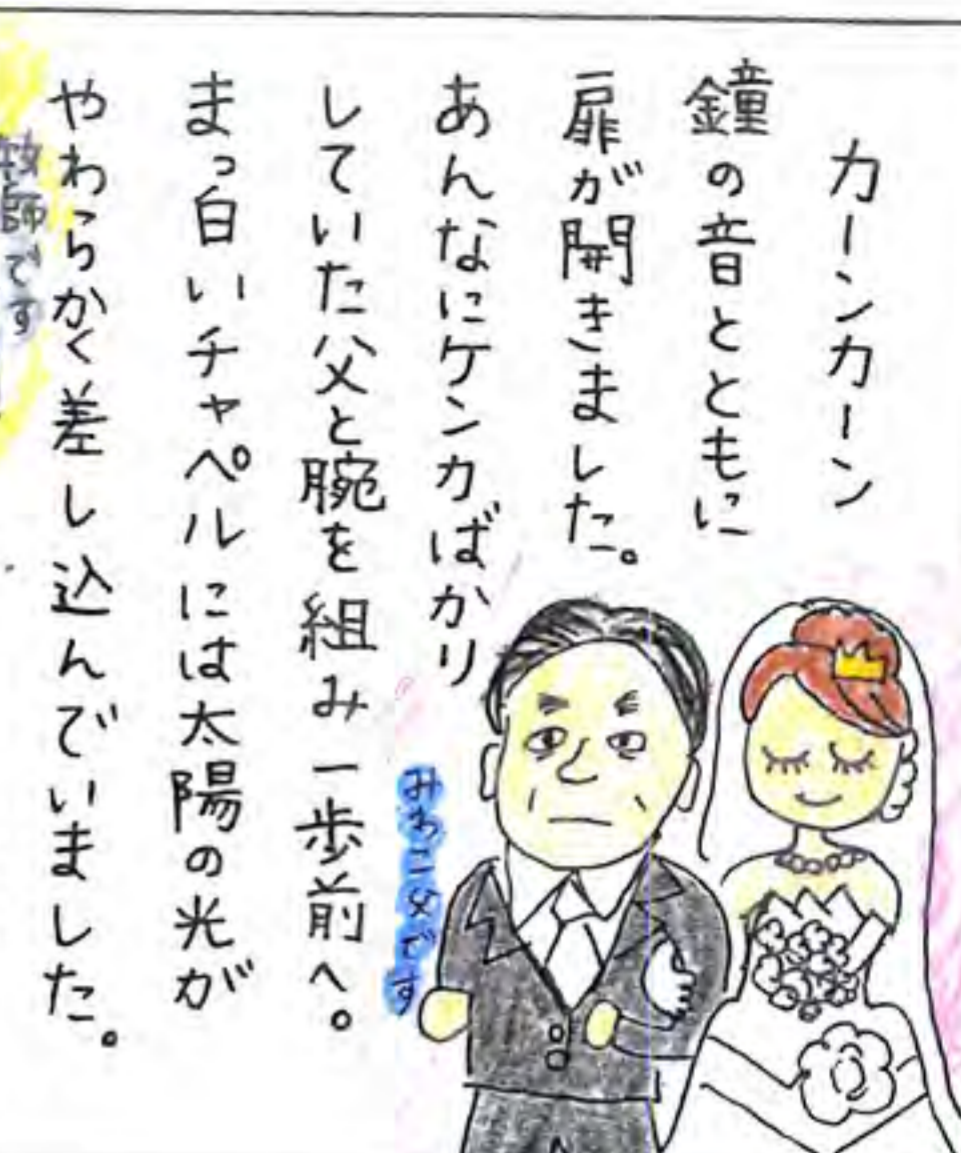 カーンカーン
鐘の音とともに
扉が開きました。
あんなにケンカばかり
していた父と腕を組み一歩前へ。
まっ白いチャペルには太陽の光が
やわらかく差し込んでいました。
みわこ父です
牧師です